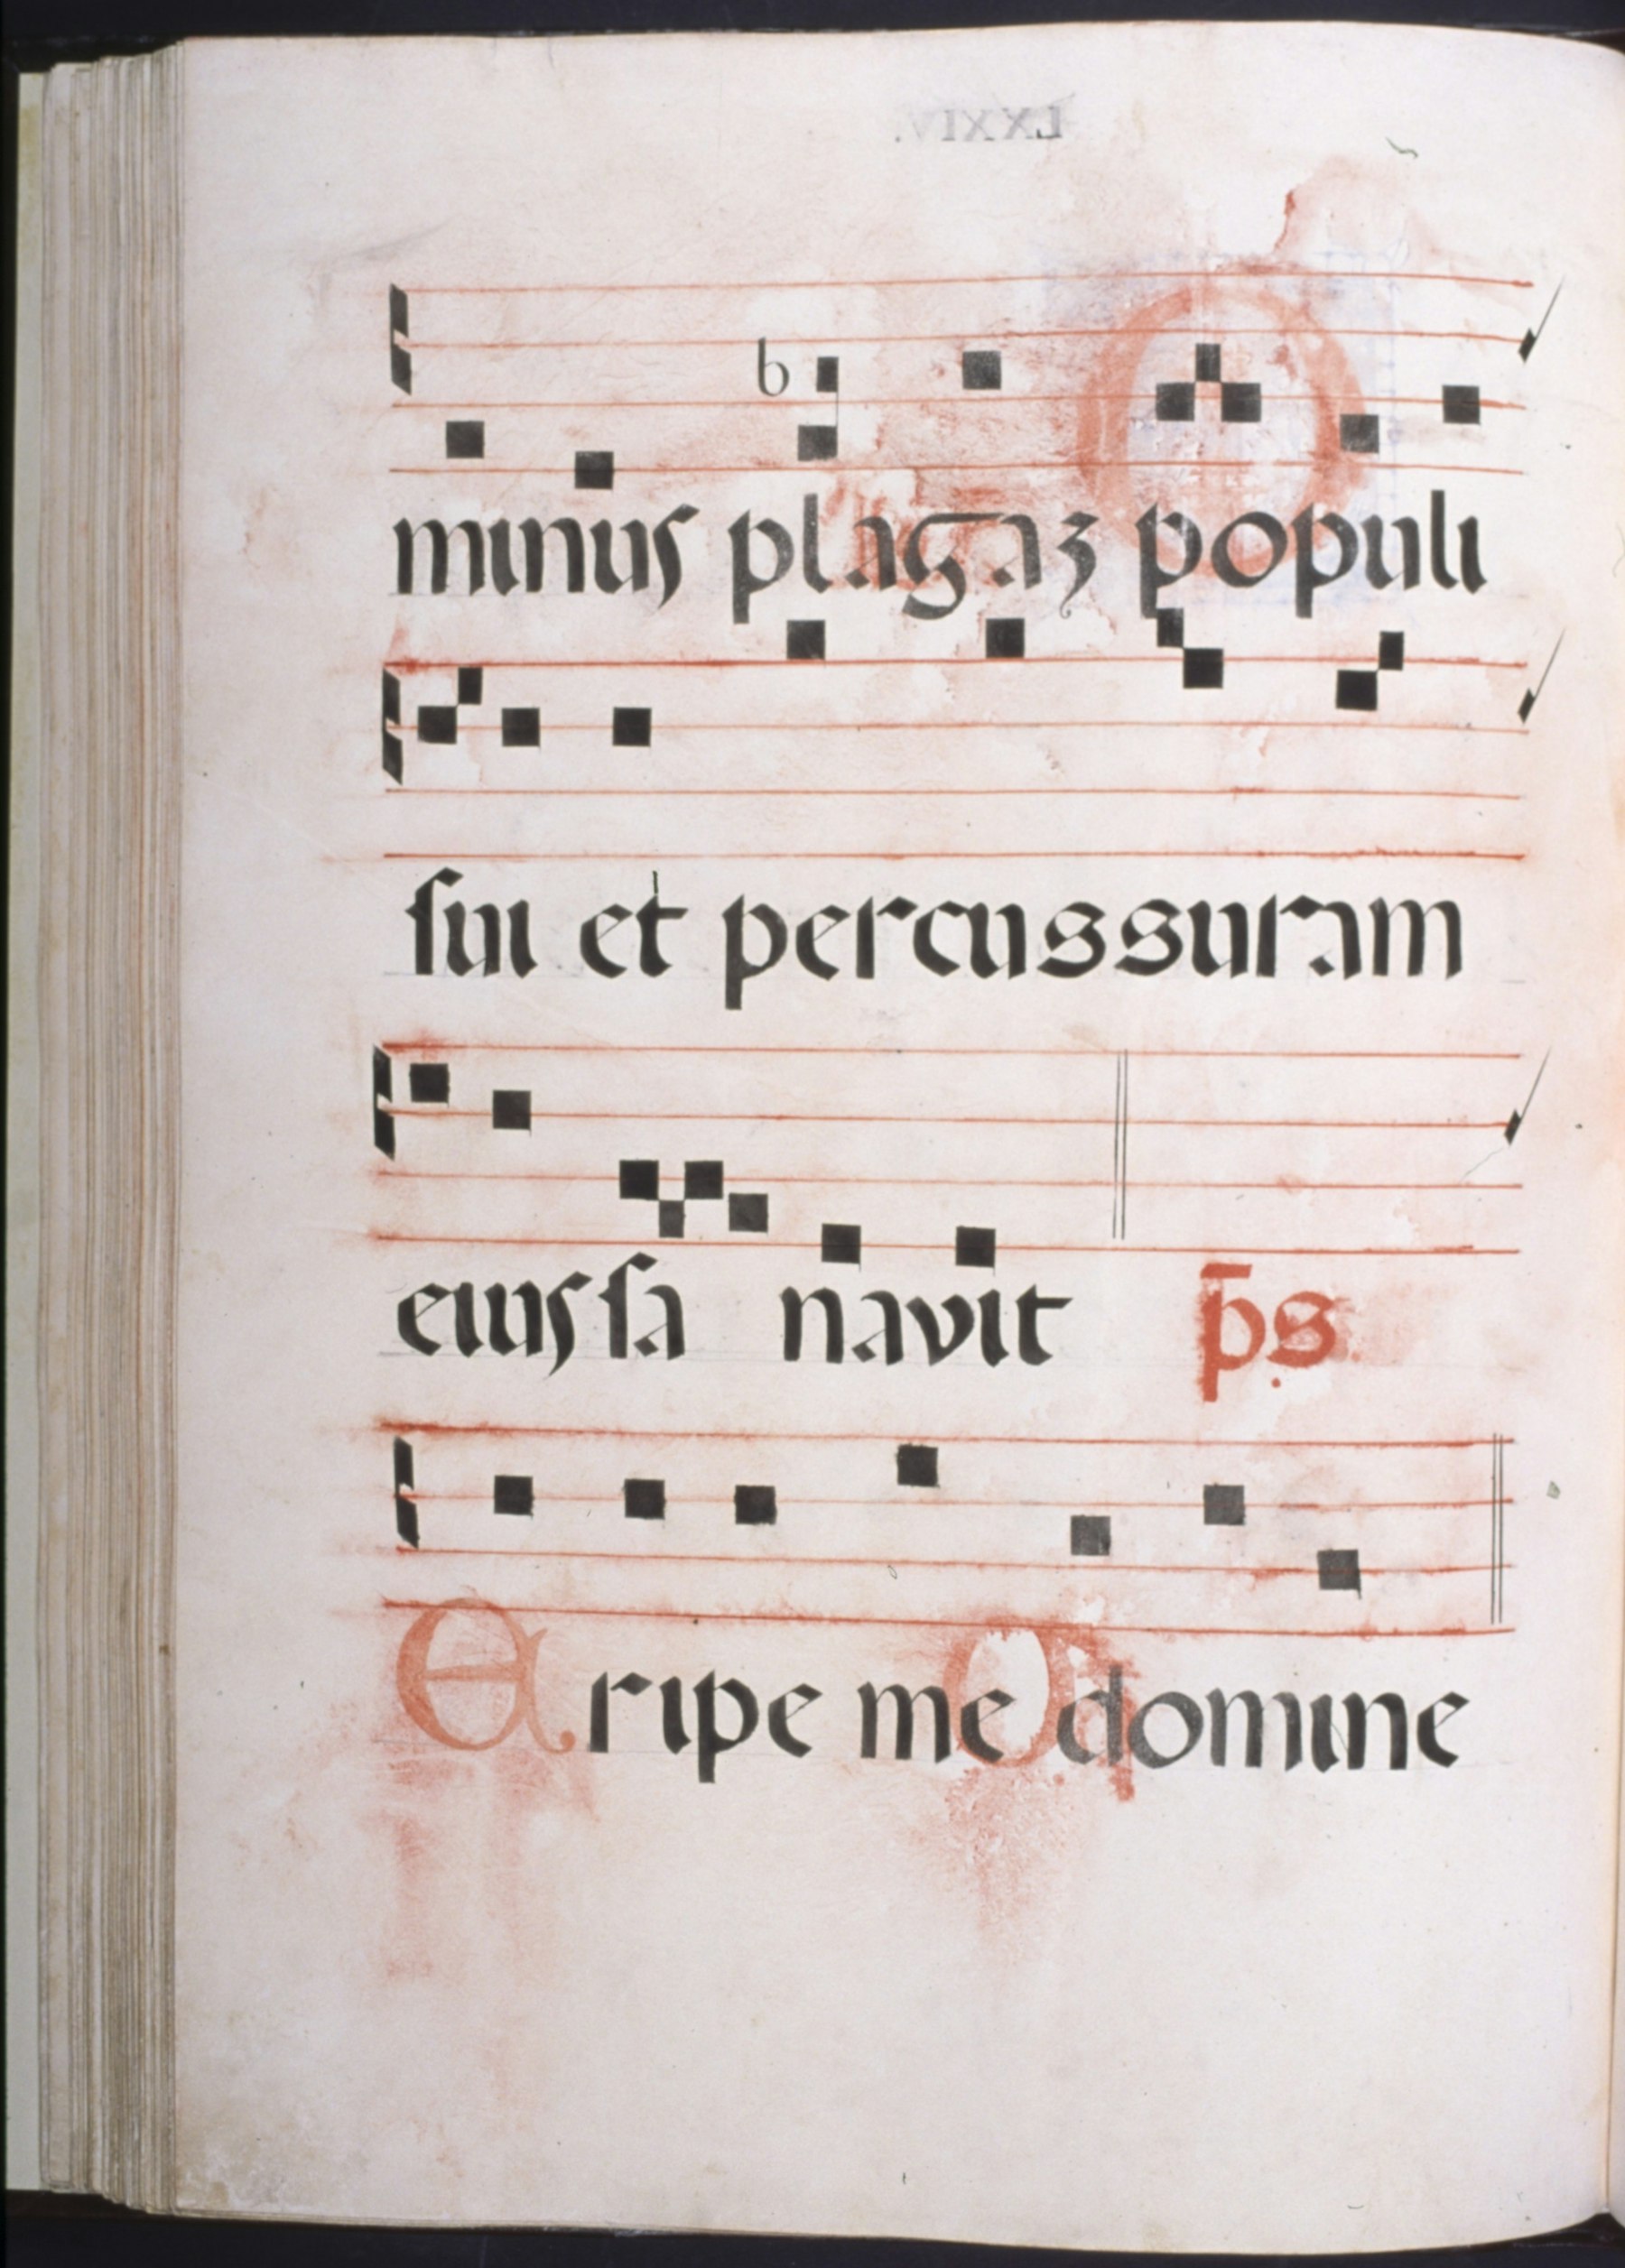 LXXIV.
b
minus plagaz populi
sui et percussuram
eius sa navit p̄s
Eripe me domine